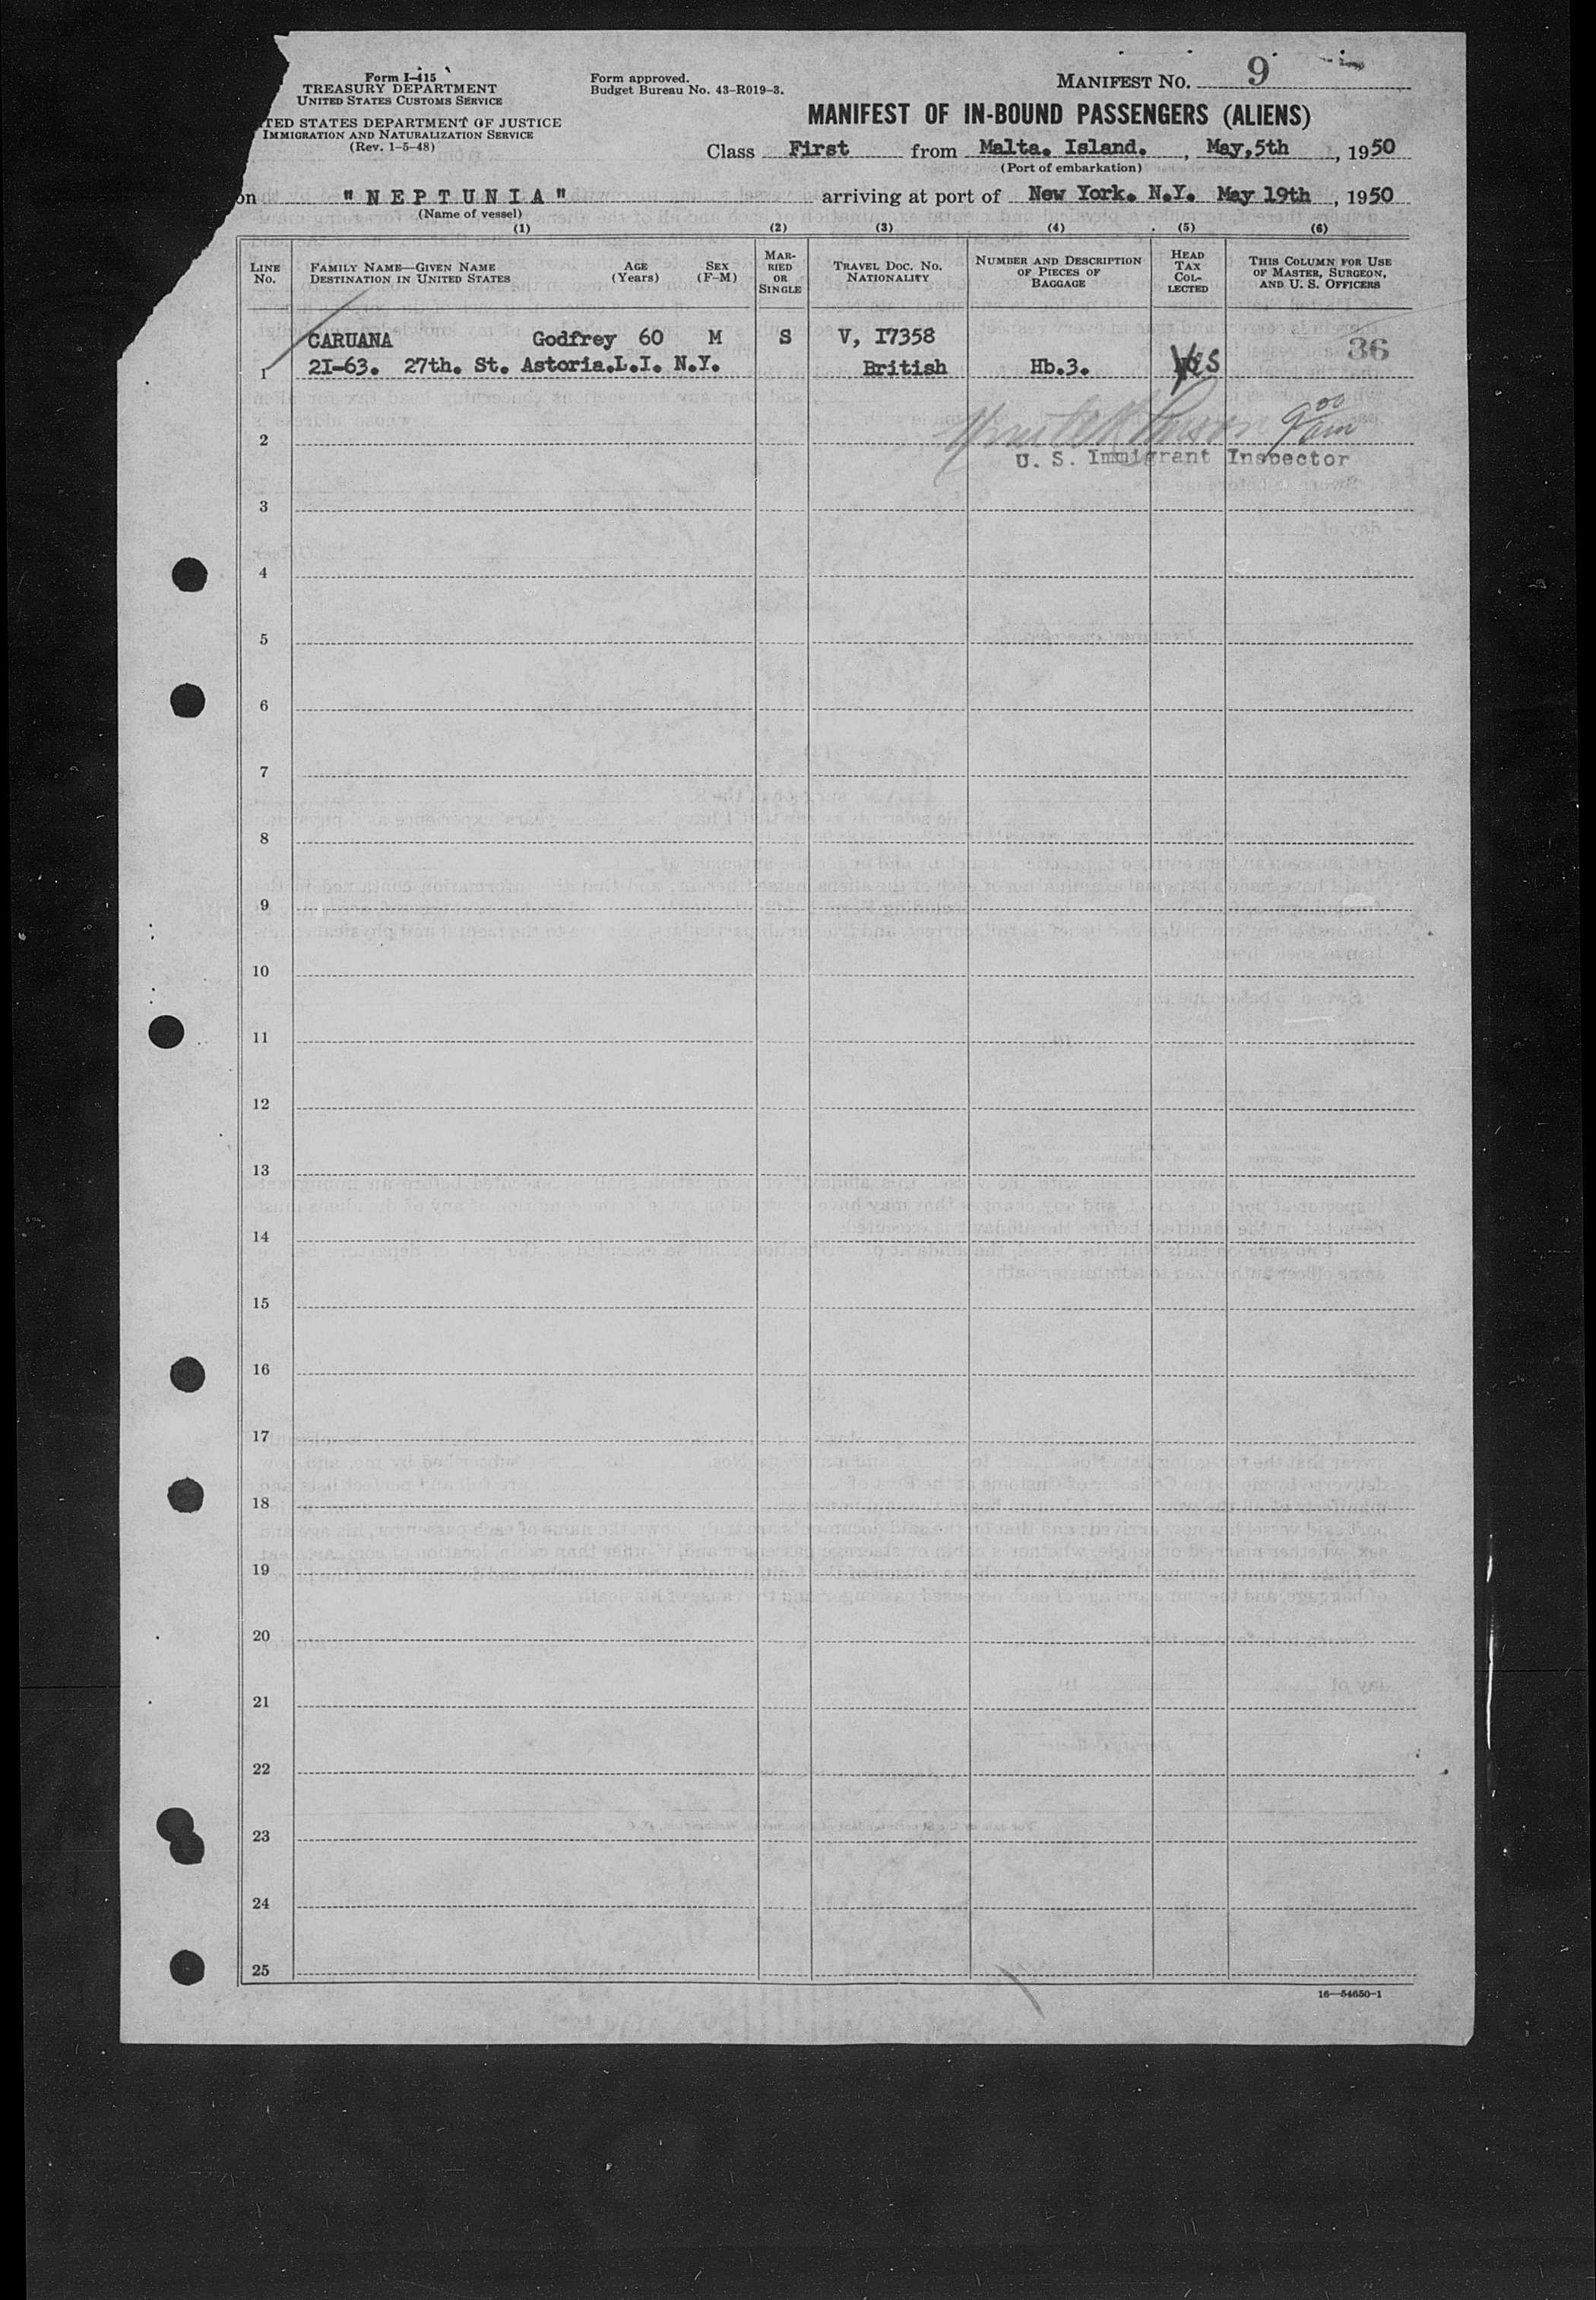 Form I-415
TREASURY DEPARTMENT
UNITED STATES CUSTOMS SERVICE
TED STATES DEPARTMENT OF JUSTICE
IMMIGRATION AND NATURALIZATION SERVICE
(Rev. 1-5-48)
Form approved.
Budget Bureau No. 43-R019-3.
MANIFEST NO. 9
MANIFEST OF IN-BOUND PASSENGERS (ALIENS)
Class First from Malta. Island. , May,5th , 1950
(Port of embarkation)
on "NEPTUNIA" arriving at port of New York. N.Y. May 19th , 1950
(Name of vessel)
(1) (2) (3) (4) (5) (6)
LINE No.
FAMILY NAME—GIVEN NAME
DESTINATION IN UNITED STATES
AGE (Years)
SEX (F-M)
MARRIED OR SINGLE
TRAVEL DOC. NO. NATIONALITY
NUMBER AND DESCRIPTION OF PIECES OF BAGGAGE
HEAD TAX COLLECTED
THIS COLUMN FOR USE OF MASTER, SURGEON, AND U. S. OFFICERS
CARUANA Godfrey 60 M S V, I7358
36
1 2I-63. 27th. St. Astoria.L.I. N.Y. British Hb.3. Yes
9 00 am
2
U. S. Immigrant Inspector
3
4
5
6
7
8
9
10
11
12
13
14
15
16
17
18
19
20
21
22
23
24
25
16—54650-1